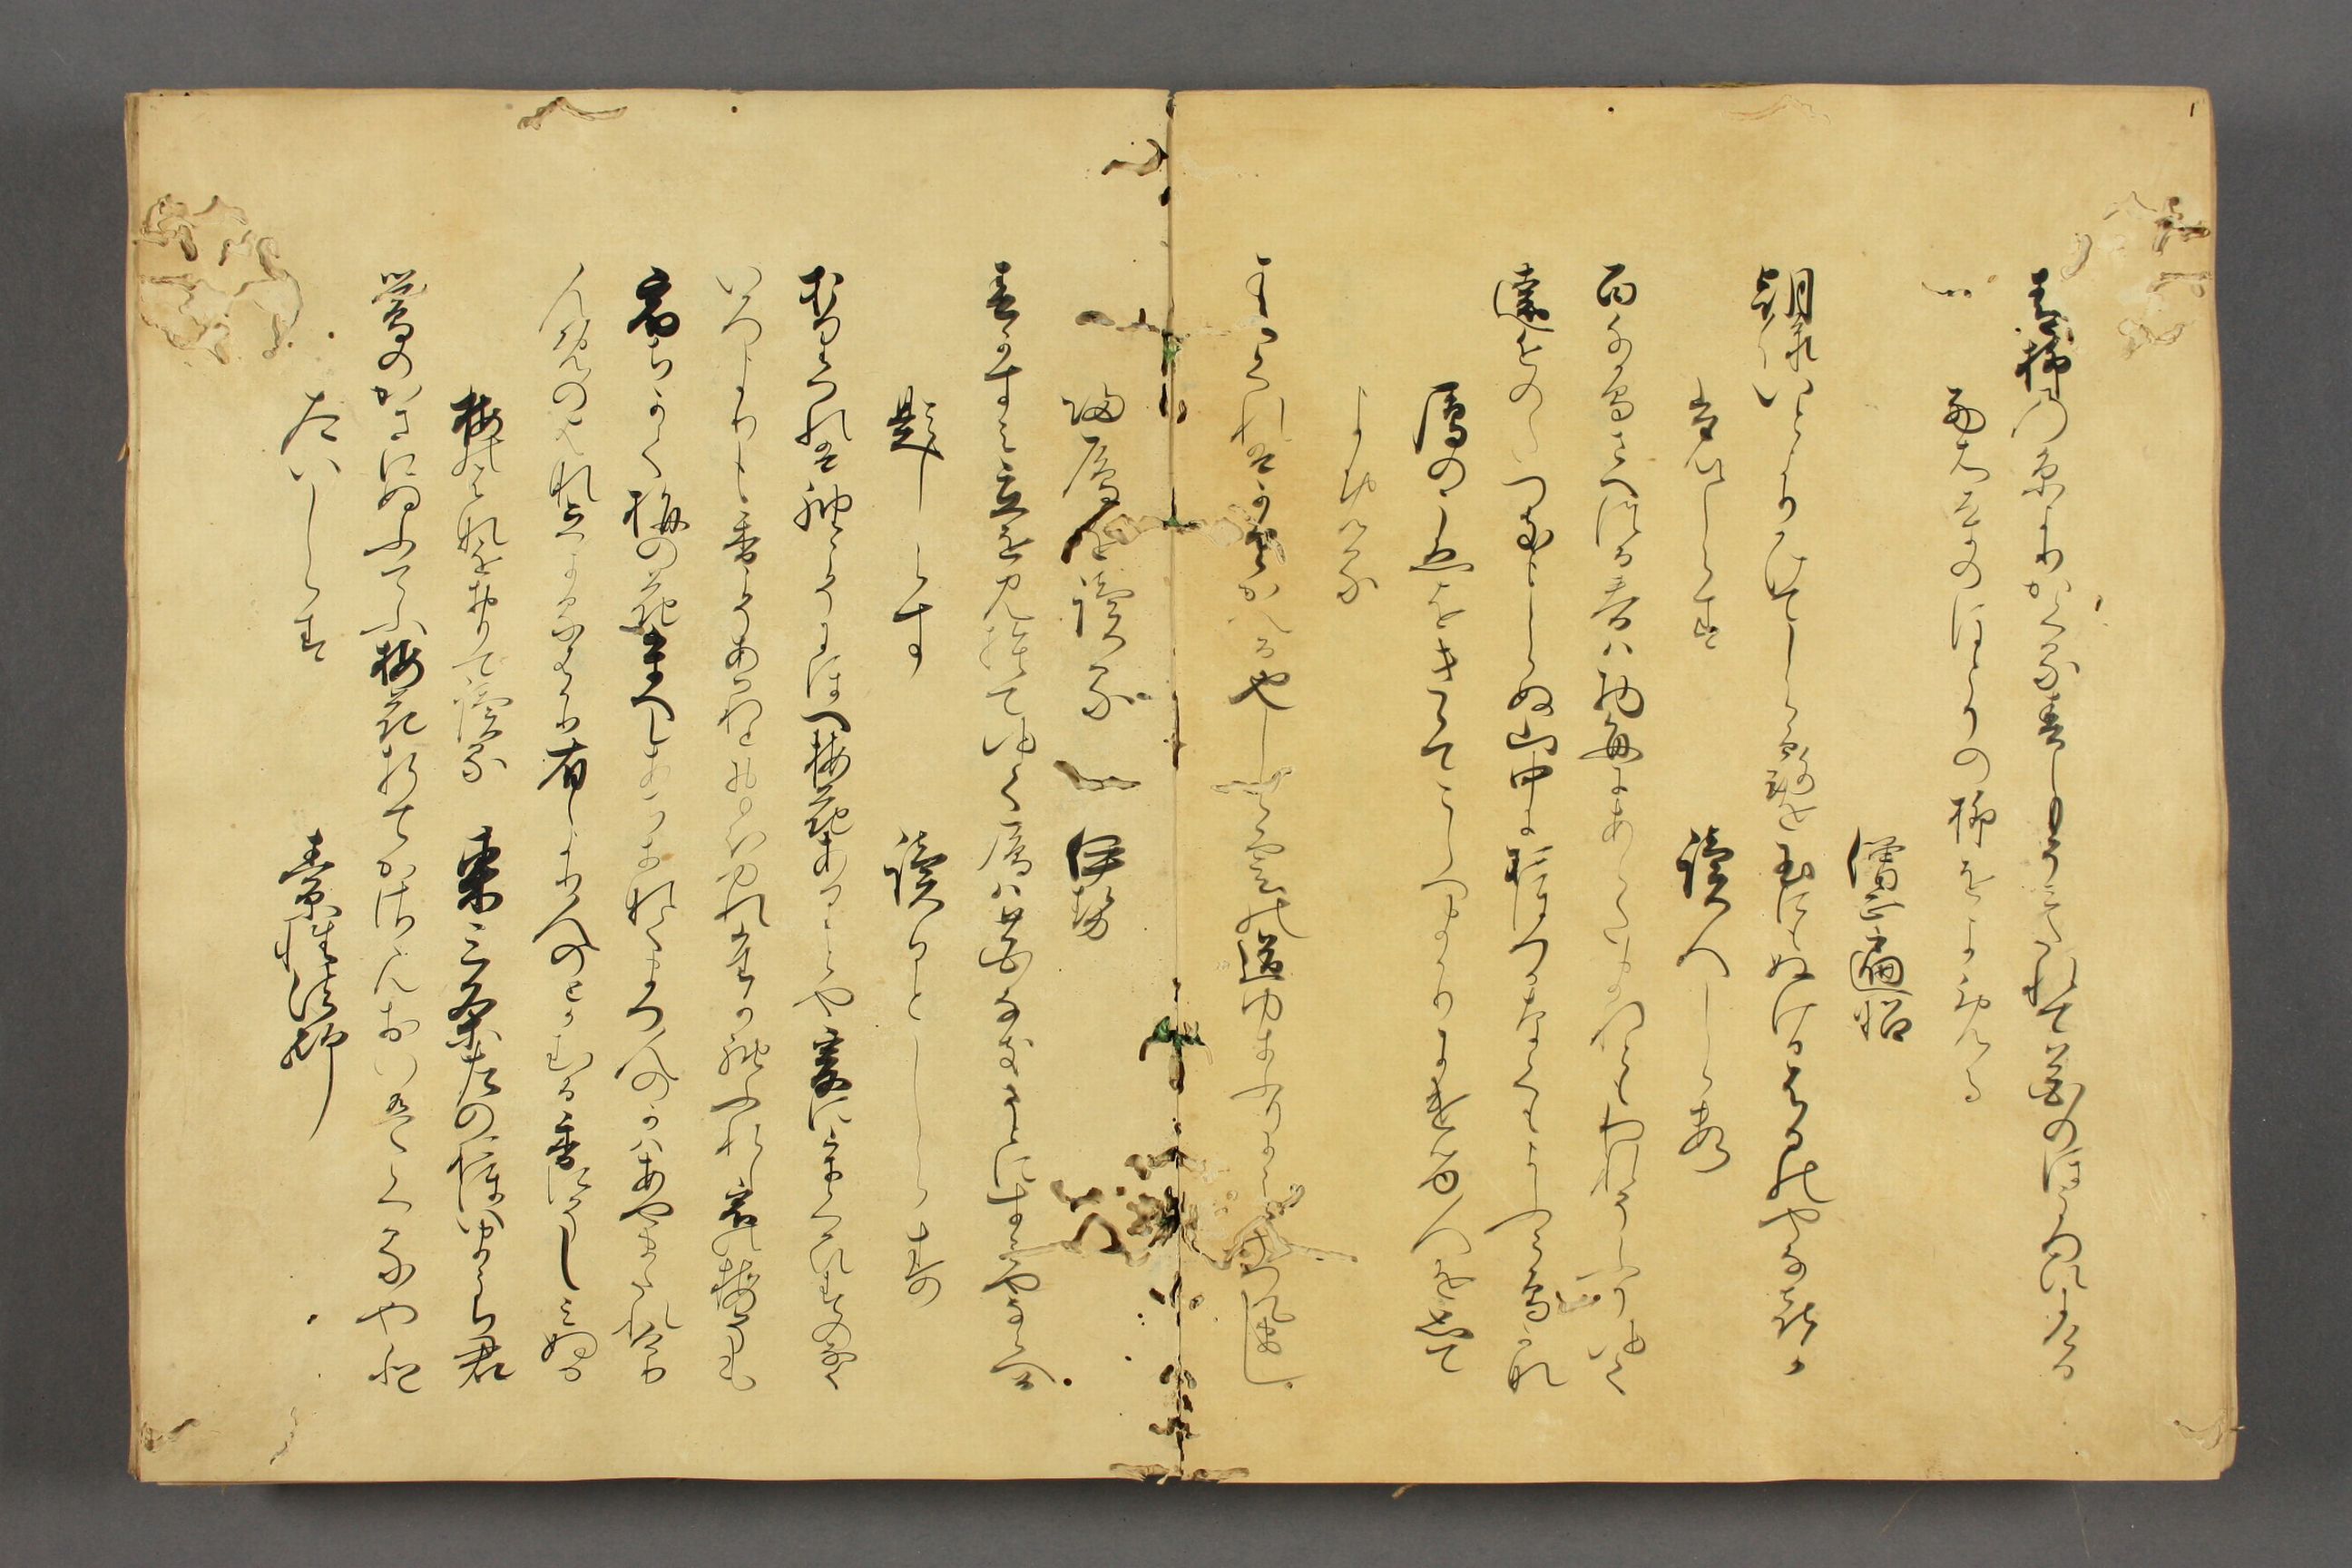 青柳の糸よりかくる春しもそみたれて花のほころひにける
西大寺のほとりの柳をよみける
僧正遍昭
朝緑いとよりかけてしら露を玉にもぬけるはるのやなきか
たいしらす　読人しらす
百千鳥さへつる春は物毎にあらたまれともわれそふりゆく
遠近のたつきもしらぬ山中におほつかなくもよふこ鳥かな
鴈のこゑをききてこしへまかりにける人を思て
よめる
はるくれはかりかへるなりしら雲の道ゆきふりにことやつてまし
帰鴈を読る　伊勢
春かすみ立を見捨てゆく鴈は花なきさとにすみやならへる
題しらす　読人しらす
折つれは袖こそにほへ梅花ありとや爰にうくひすのなく
いろよりも香こそあはれとおもほゆれ誰か袖ふれし宿の梅そも
宿ちかく梅の花うへしあちきなくまつ人のかにあやまたれけり
たちよるはかり有しより人のとかむる香にそしみぬる
梅花をおりて読る　東三条左のおほいまうち君
鶯のかさにぬふてふ梅花折てかささんおいかくるやと
たいしらす　素性法師